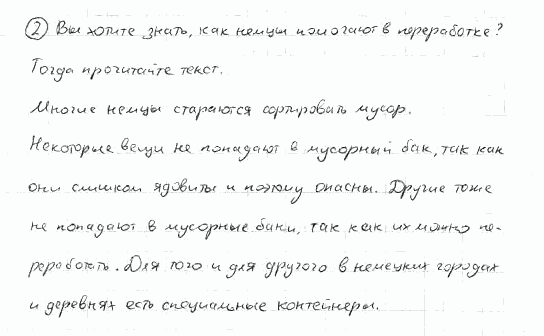 ② Вы хотите знать, как немцы помогают в переработке?
Тогда прочитайте текст.
Многие немцы стараются сортировать мусор.
Некоторые вещи не попадают в мусорный бак, так как
они слишком ядовиты и поэтому опасны. Другие тоже
не попадают в мусорные баки, так как их можно пе-
реработать. Для того и для другого в немецких городах
и деревнях есть специальные контейнеры.